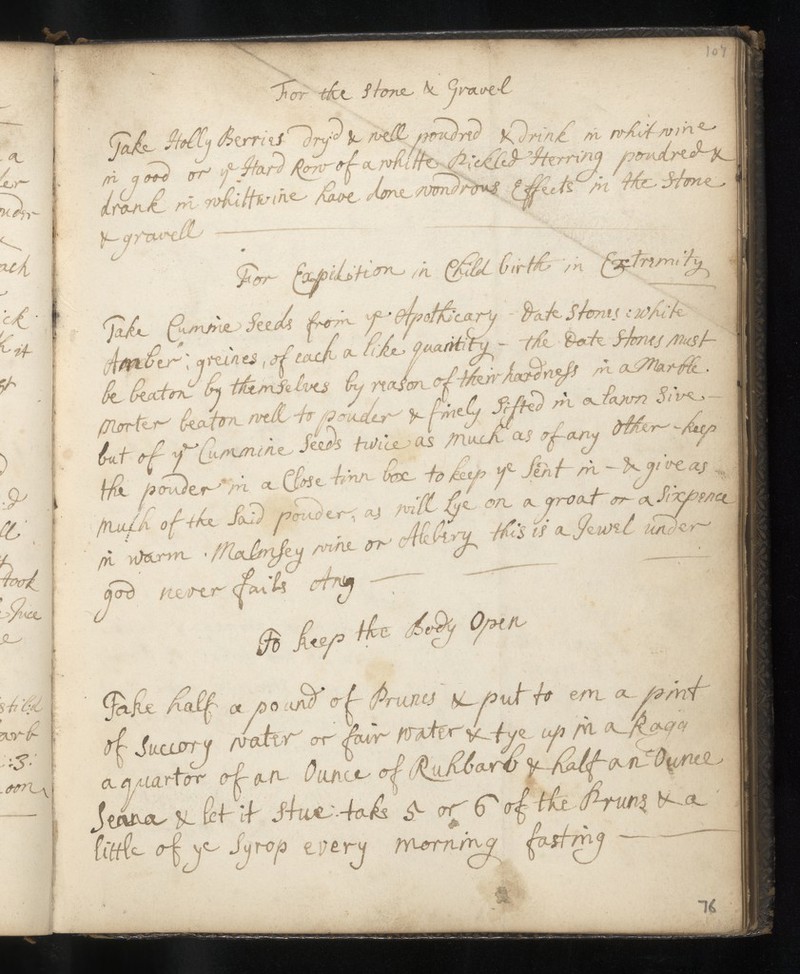 107
For the Stone & Gravel
Take Holly Berries dryd & well poudred & drink in whit wine
in good or ye Hard Row of a whitte Pickled Herring poudred &
drank in whittwine have done wondrous Effects in the Stone
& gravell
For Expidition in Child birth in Extrimity
Take Cumine Seeds from ye Apothicary - date Stones : white
Amber ; greines, of each a like quantity - the date Stones must
be beaton by themselves by reason of their hardness in a Marble
Morter beaton well to pouder & finely Sifted in a lawn Sive -
but of ye Cummine Seeds twice as much as of any other - keep
the pouder in a Close tinn box to keep ye Sent in - & give as
much of the said pouder, as will Lye on a groat or a Sixpence
in warm Malmsey wine or this is a Jewel under
god never fails Any
To keep the Body Open
Take half a pound of Prunes & put to em a pint
of Succory water or fair water & tye up in a Ragg
a quartor of an Ounce of Ruhbarb & half an Ounce
Seana & let it stue : take 5 or 6 of the Pruns & a
little of ye Syrop every morning fasting
76
a
ler
ach
ick
k it
st
d
ll
took
Juce
e
still'd
arb
:3:
oon